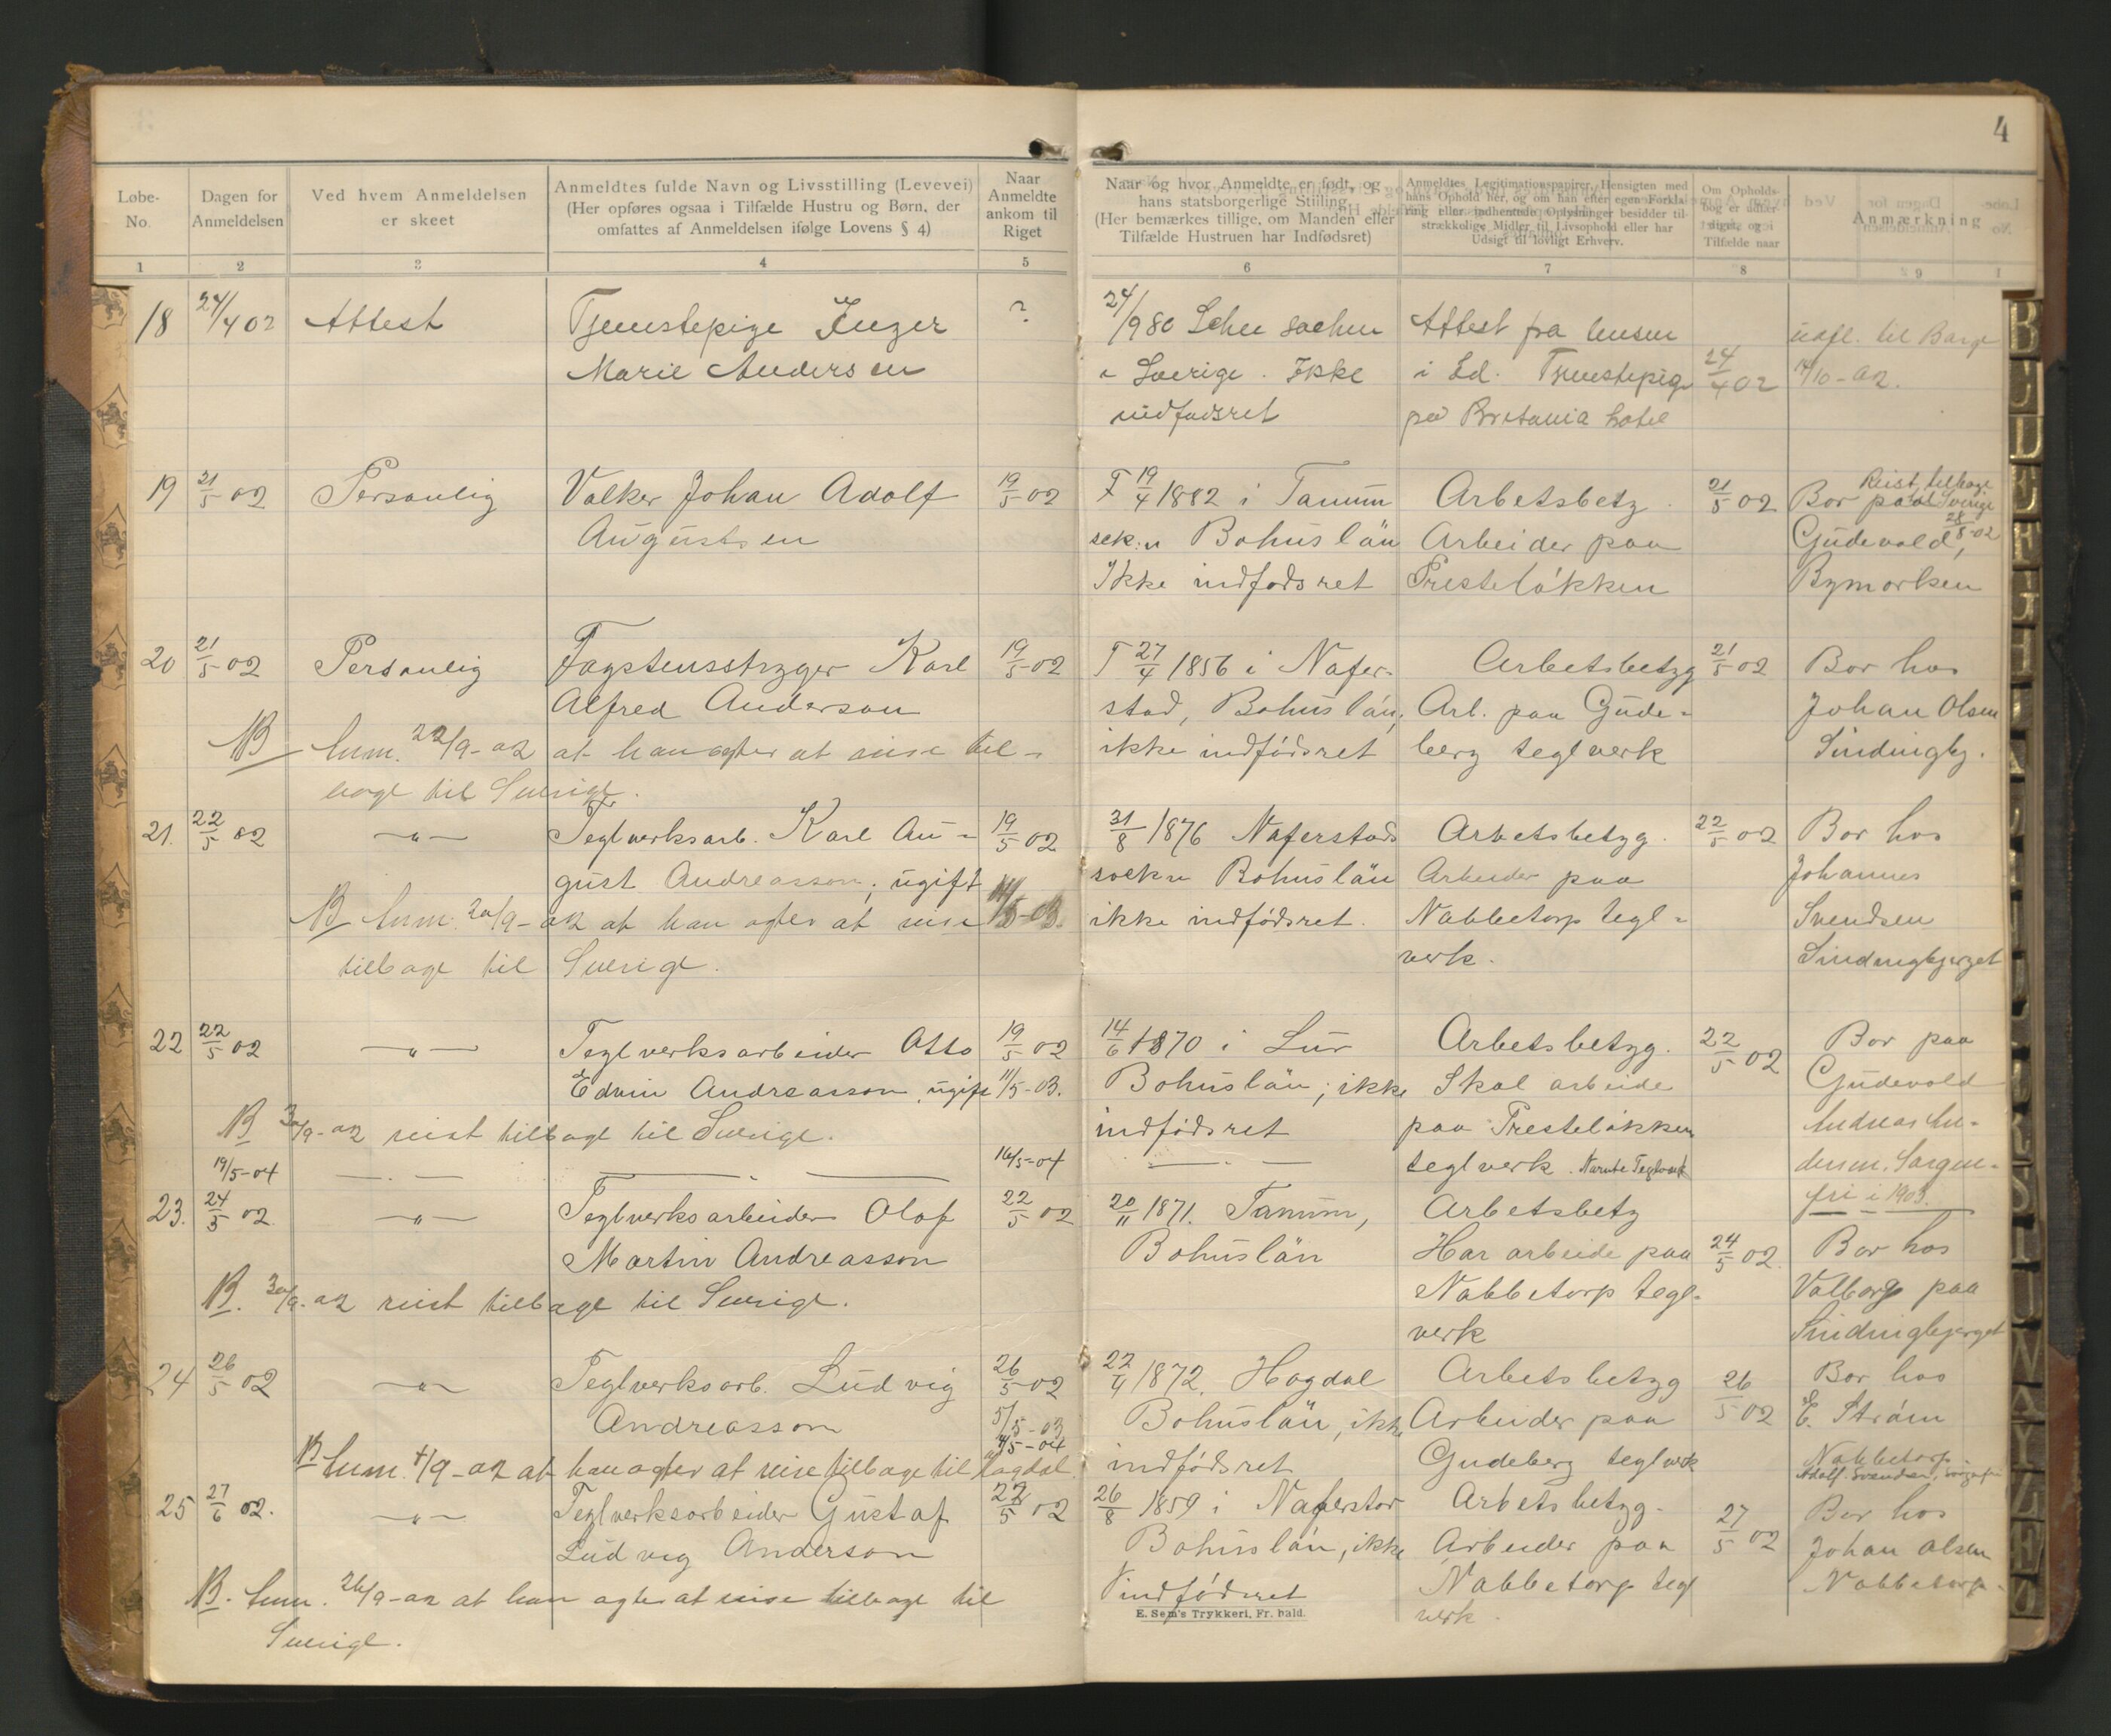 4
Løbe-No.
Dagen for Anmeldelsen
Ved hvem Anmeldelsen er skeet
Anmeldtes fulde Navn og Livsstilling (Levevei)
(Her opføres ogsaa i Tilfælde Hustru og Børn, der
omfattes af Anmeldelsen ifølge Lovens § 4)
Naar Anmeldte ankom til Riget
Naar og hvor Anmeldte er født, og
hans statsborgerlige Stilling
(Her bemærkes tillige, om Manden eller
Tilfælde Hustruen har Indfødsret)
Anmeldtes Legitimationspapirer, Hensigten med
hans Ophold her, og om han efter egen Forkla-
ring eller indhentede Oplysninger besidder til-
strækkelige Midler til Livsophold eller har
Udsigt til lovligt Erhverv.
Om Opholds-
bog er udfær-
diget, og i
Tilfælde naar
Anmærkning
1 2 3 4 5 6 7 8 9
18 24/4 02 Attest Tjenestepige Inger ? 24/9 80 Attest fra
Marie Andersen Sverige. Ikke i Ed. Tjenestepige 24/4 02 /10-02.
indfødsret paa Britania hotel
19 21/5 02 Personlig Valker Johan Adolf 19/5 02 F 19/4 1882 i Tanum Arbetsbetg. 21/5 02 Bor paa
Reist tilbage
til Sverige
28/8-02
Augustsen Bohuslän Arbeider paa Gudevold,
Ikke indfødsret Presteløkken Bymarken
20 21/5 02 Personlig Karl 19/5 02 F 27/4 1856 i Nafer- Arbetsbetyg 21/5 02 Bor hos
Alfred Anderson stad, Bohuslän, Arb. paa Gude- Johan Olsen
NB 22/9-02 at han agter at reise til- ikke indfødsret berg teglverk Sindingbj.
bage til Sverige.
21. 22/5 02 —„— Teglverksarb. Karl Au- 19/5 02 31/8 1876 Naferstads Arbetsbetyg. 22/5 02 Bor hos
gust Andreasson, ugift sockn Bohuslän Arbeider paa Johannes
NB /9-02 at han agter at reise ikke indfødsret. Nabbetorp tegl- Svendsen
tilbage til Sverige. verk. Sindingbjerget
22 22/5 02 —„— Teglverksarbeider Otto 19/5 02 14/6 1870 i Lur Arbetsbetyg. 22/5 02 Bor paa
Edvin Andreasson, ugift 11/5-03. Bohuslän; ikke Skal arbeide Gudevold
NB 30/9-02 reist tilbage til Sverige. indfødsret paa Presteløkken Andreas An-
19/5-04 16/5-04 teglverk. Teglverk dersen. Sorgen-
fri i 1903.
23. 24/5 02 —„— Teglverksarbeider Olaf 22/5 02 20/11 1871. Tanum, Arbetsbetg
Martin Andreasson Bohuslän Har arbeide paa 24/5 02. Bor hos
NB. 30/9-02 reist tilbage til Sverige. Nabbetorp tegl- Valborg paa
verk Sindingbjerget
24 26/5 02 —„— Teglverksarb. Ludvig 26/5 02 Hogdal Arbetsbetyg 26/5 02 Bor hos
Andreasson 5/5-03 Bohuslän, ikke Arbeider paa E. Strøm
NB 4/9-02 at han agter at reise tilbage til Hogdal. indfødsret Gudeberg teglverk Nabbetorp
Adolf Svendsen, Sorgenfri
25 27/6 02. —„— Teglverksarbeider Gustaf 22/5 02 26/8 1859 i Arbetsbetyg. 27/5 02 Bor hos
Ludvig Anderson Bohuslän, ikke Arbeider paa Johan Olsen
NB. 26/9-02 at han agter at reise tilbage til indfødsret Nabbetorp tegl Nabbetorp.
Sverige. verk.
E. Sem's Trykkeri, Fr. hald.